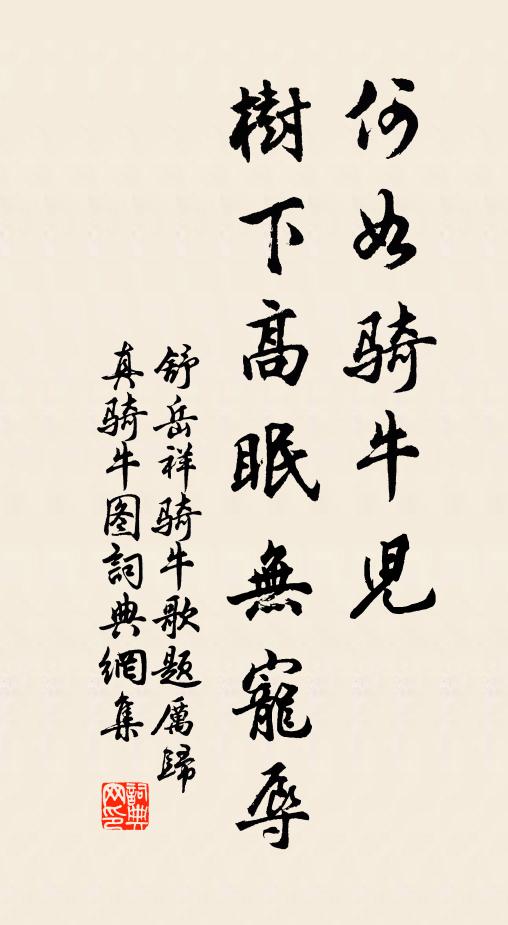 何如骑牛児
樹下高眠無寵辱
舒岳祥骑牛歌题厲歸
真骑牛图詞典網集
詞典网印